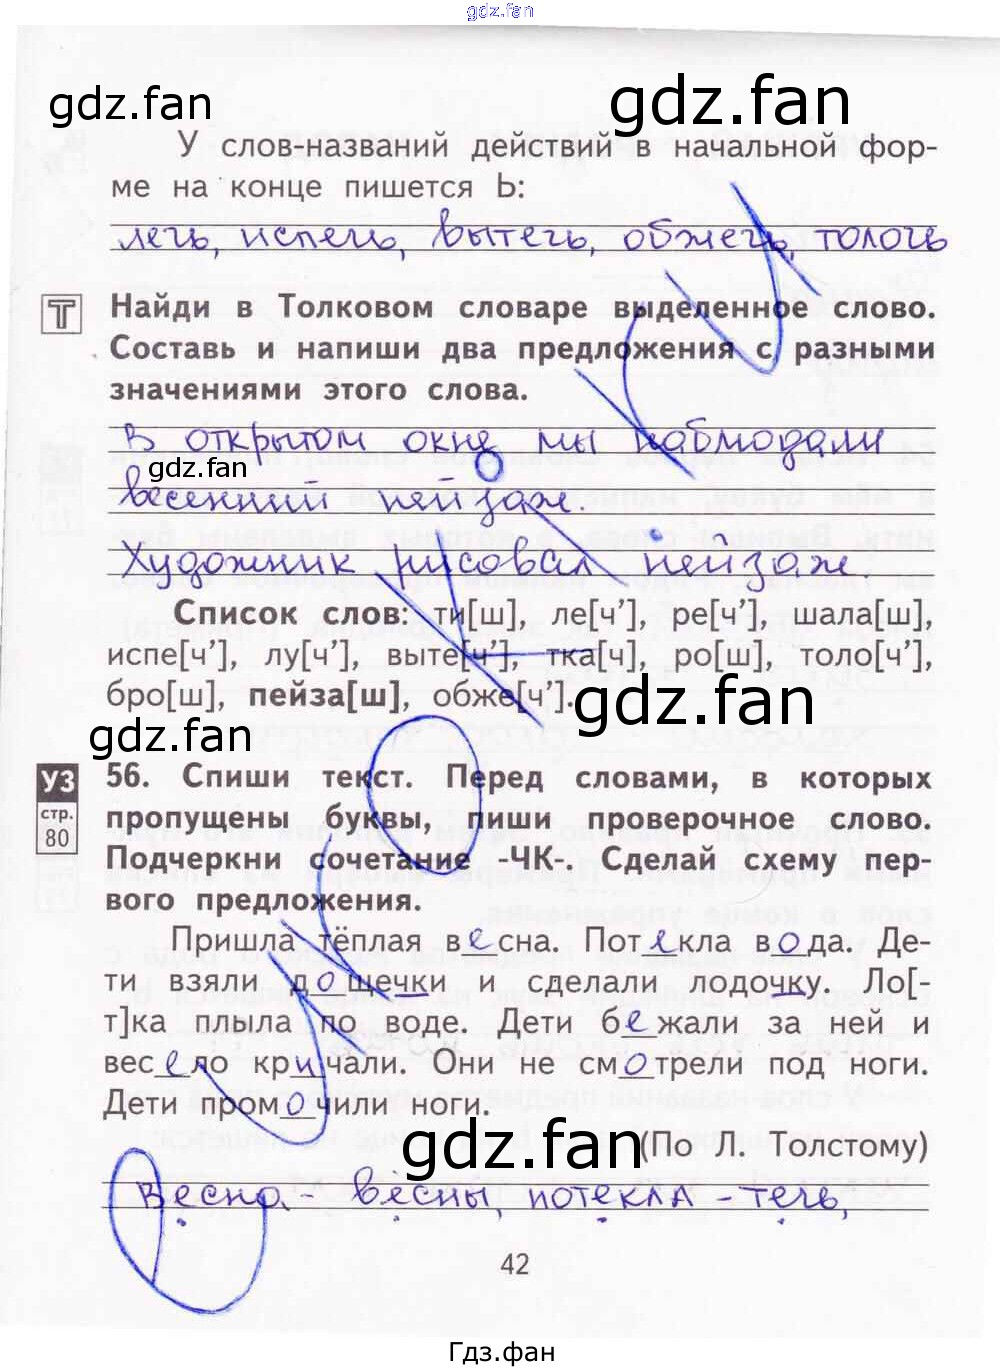 gdz.fan
gdz.fan
gdz.fan
У слов-названий действий в начальной фор-
ме на конце пишется Ь:
лечь, испечь, вытечь, обжечь, толочь
Т Найди в Толковом словаре выделенное слово.
Составь и напиши два предложения с разными
значениями этого слова.
В открытом окне мы наблюдали
gdz.fan
весенний пейзаж.
Художник рисовал пейзаж
Список слов: ти[ш], ле[ч’], ре[ч’], шала[ш],
испе[ч’], лу[ч’], выте[ч’], тка[ч], ро[ш], толо[ч’],
бро[ш], пейза[ш], обже[ч’].
gdz.fan
gdz.fan
УЗ
стр.
80
56. Спиши текст. Перед словами, в которых
пропущены буквы, пиши проверочное слово.
Подчеркни сочетание -ЧК-. Сделай схему пер-
вого предложения.
Пришла тёплая весна. Потекла вода. Де-
ти взяли дощечки и сделали лодочку. Ло[-
т]ка плыла по воде. Дети бежали за ней и
весело кричали. Они не смотрели под ноги.
Дети промочили ноги.
gdz.fan
(По Л. Толстому)
Весна - вёсны, потекла - течь,
42
Гдз.фан